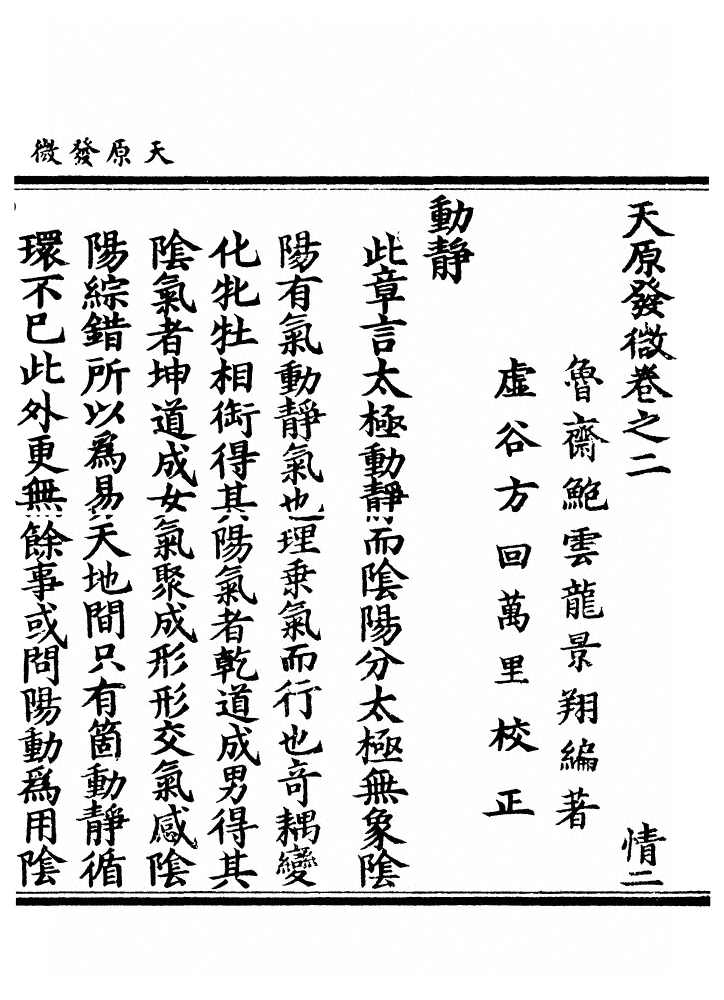 天原發微
天原發微卷之二 情二
魯齋鮑雲龍景翔編著
虛谷方回萬里校正
動靜
此章言太極動靜而陰陽分太極無象陰
陽有氣動靜氣也理乗氣而行也竒耦變
化牝牡相衘得其陽氣者乾道成男得其
陰氣者坤道成女氣聚成形形交氣感陰
陽綜錯所以爲易天地間只有箇動靜循
環不已此外更無餘事或問陽動爲用陰